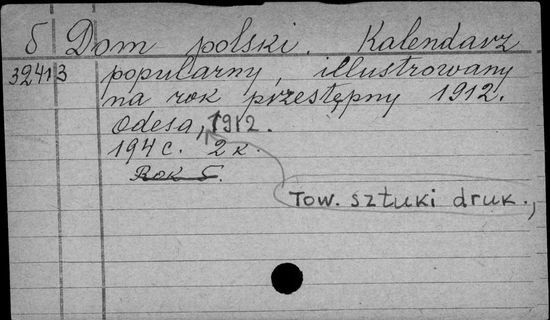 5 Dom polski. Kalendarz
32413 popularny, illustrowany
na rok przestępny 1912.
Odesa, 1912.
194 c. 2 к.
Rok 5.
Tow. sztuki druk.,